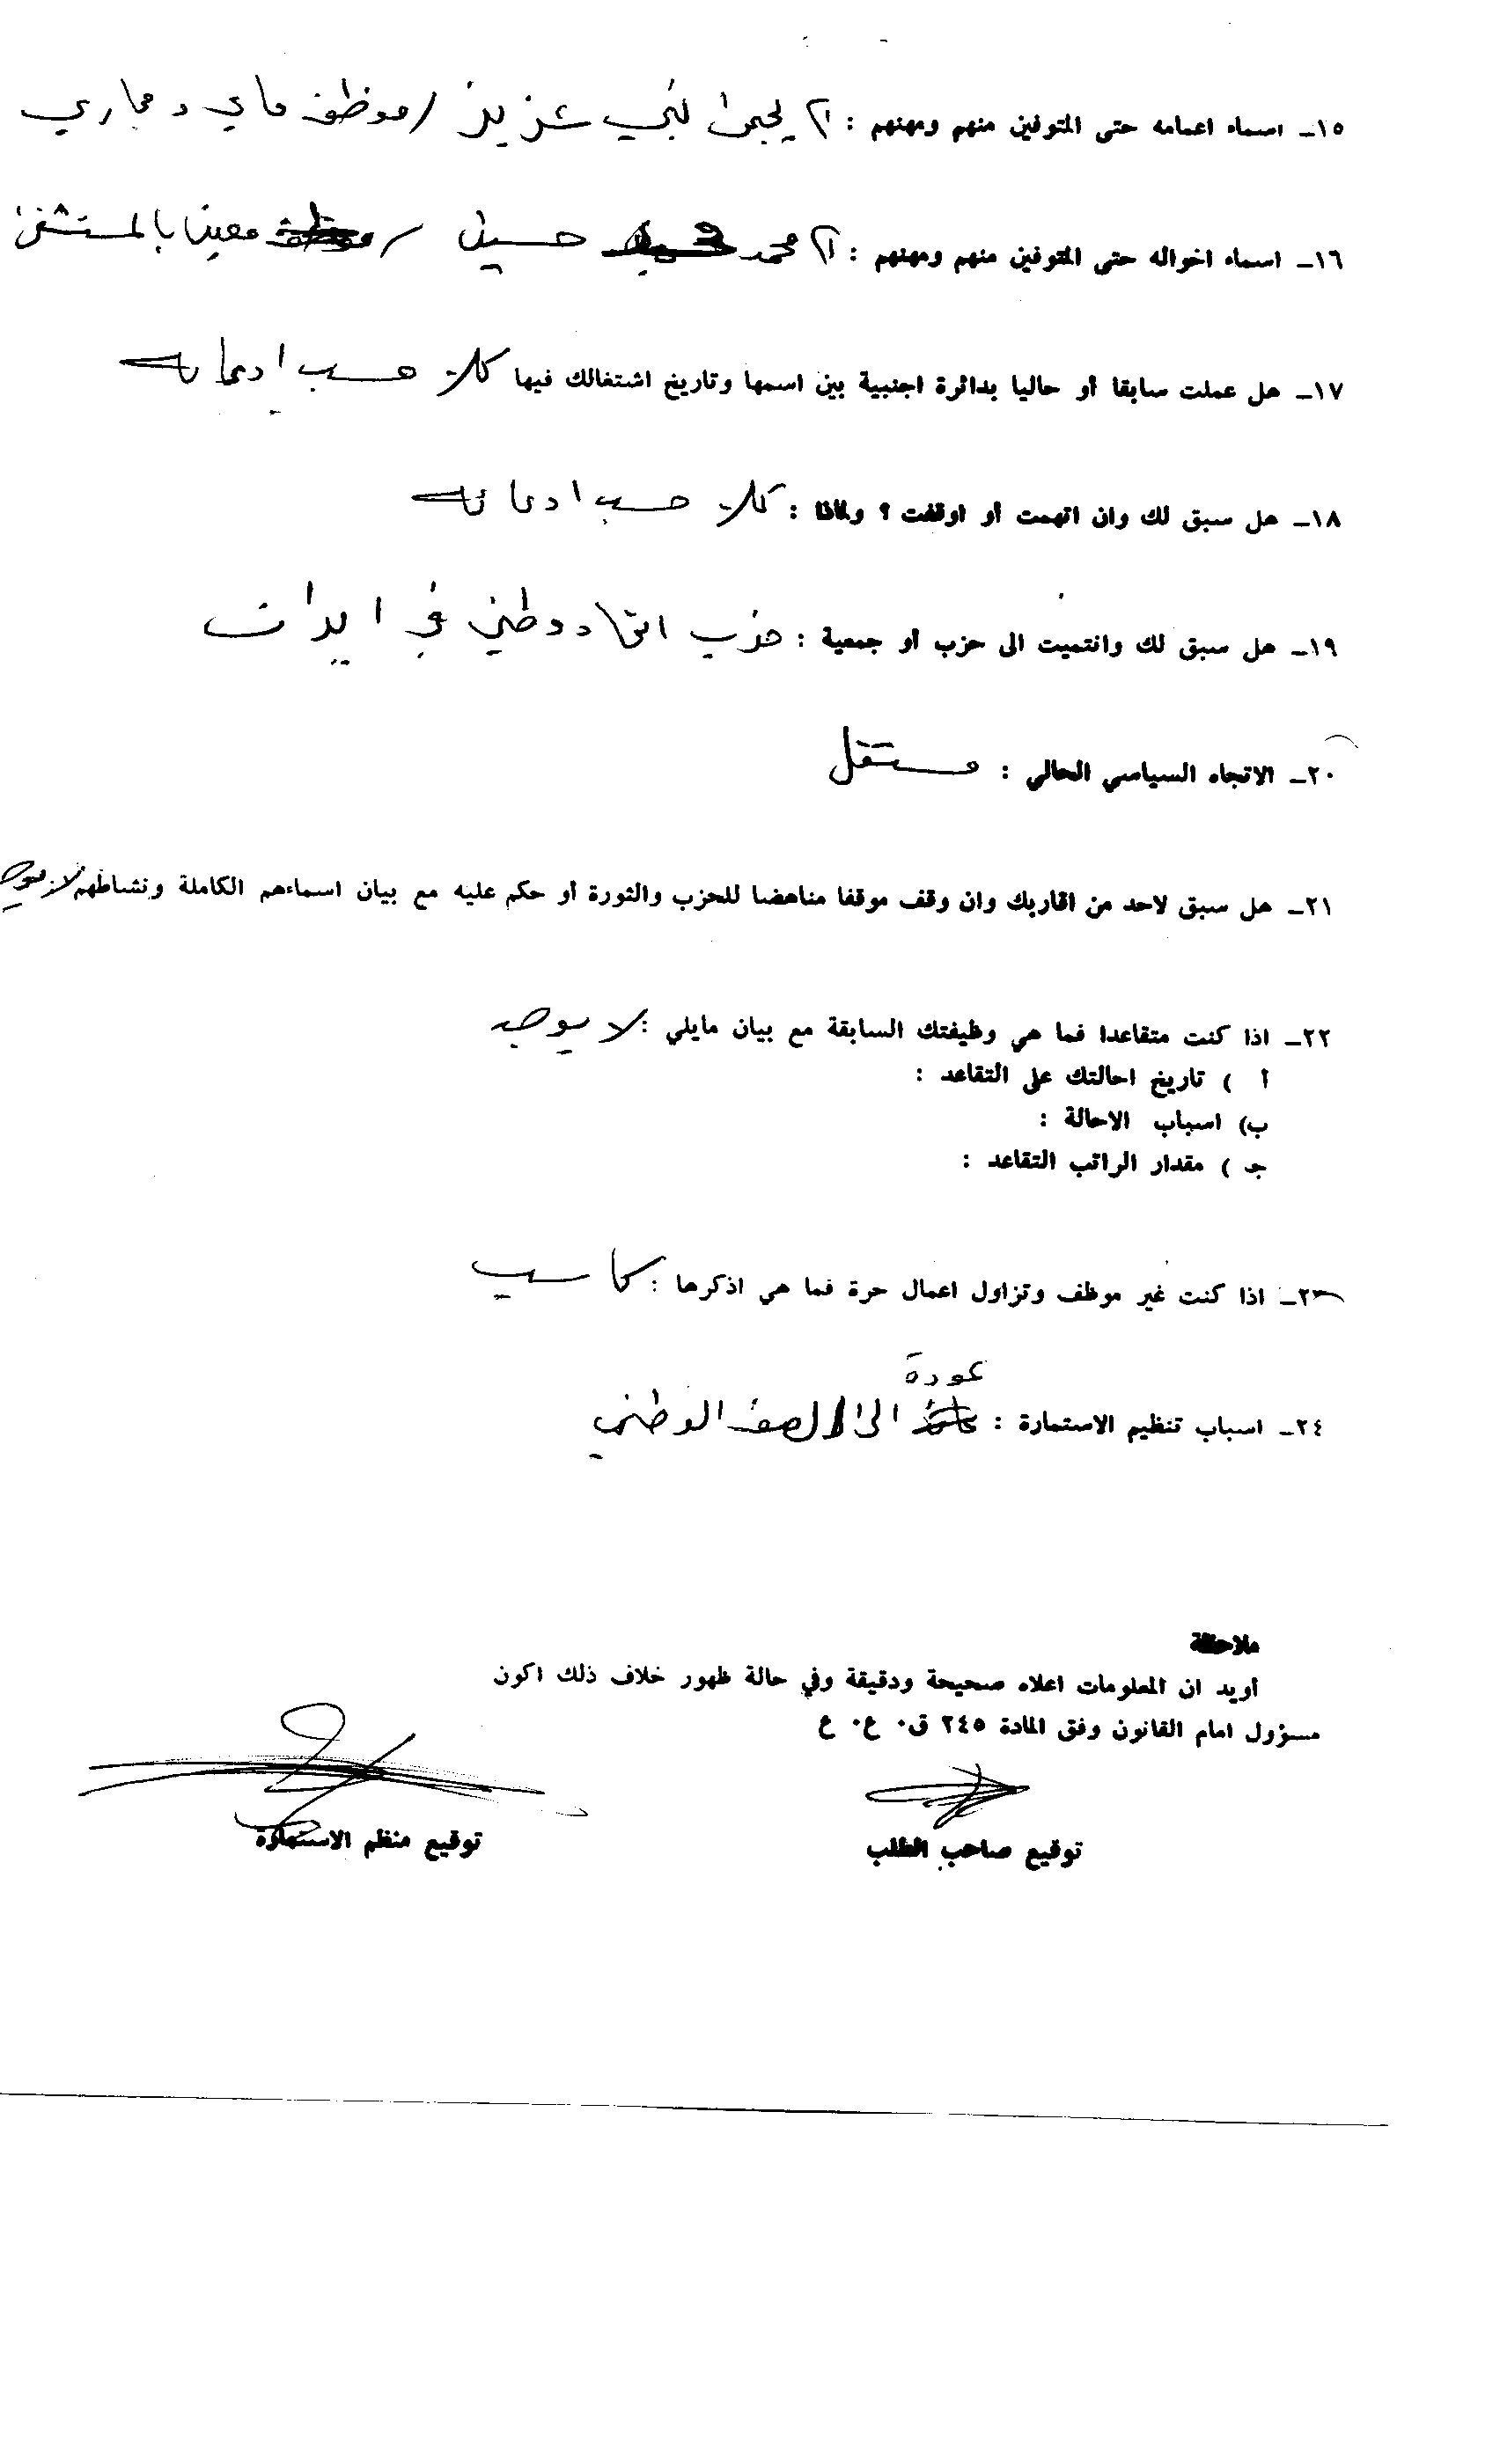 ١٥ــ اسماء اعمامه حتى المتوفين منهم ومهنهم : ١) يحيى نبي عزيز / موظف ماي ومجاري
١٦ــ اسماء اخواله حتى المتوفين منهم ومهنهم : ١) محمد حسين / معين بالمستشفى
١٧ــ هل عملت سابقا أو حاليا بدائرة اجنبية بين اسمها وتاريخ اشتغالك فيها كلا حسب ادعائه
١٨ــ هل سبق لك وان اتهمت أو اوقفت ؟ ولماذا : كلا حسب ادعائه
١٩ــ هل سبق لك وانتميت الى حزب أو جمعية : حزب اتحاد وطني في ايران
٢٠ــ الاتجاه السياسي الحالي : مستقل
٢١ــ هل سبق لاحد من اقاربك وان وقف موقفا مناهضا للحزب والثورة أو حكم عليه مع بيان اسماءهم الكاملة ونشاطهم لا يوجد
٢٢ــ اذا كنت متقاعدا فما هي وظيفتك السابقة مع بيان مايلي : لا يوجد
أ ) تاريخ احالتك على التقاعد :
ب) اسباب الاحالة :
جـ ) مقدار الراتب التقاعد :
٢٣ــ اذا كنت غير موظف وتزاول اعمال حرة فما هي اذكرها : كاسب
عودة
٢٤ــ اسباب تنظيم الاستمارة : الى الصف الوطني
ملاحظة
أريد ان المعلومات اعلاه صحيحة ودقيقة وفي حالة ظهور خلاف ذلك اكون
مسؤول امام القانون وفق المادة ٢٤٥ ق٠ ع٠ ع
توقيع صاحب الطلب
توقيع منظم الاستمارة